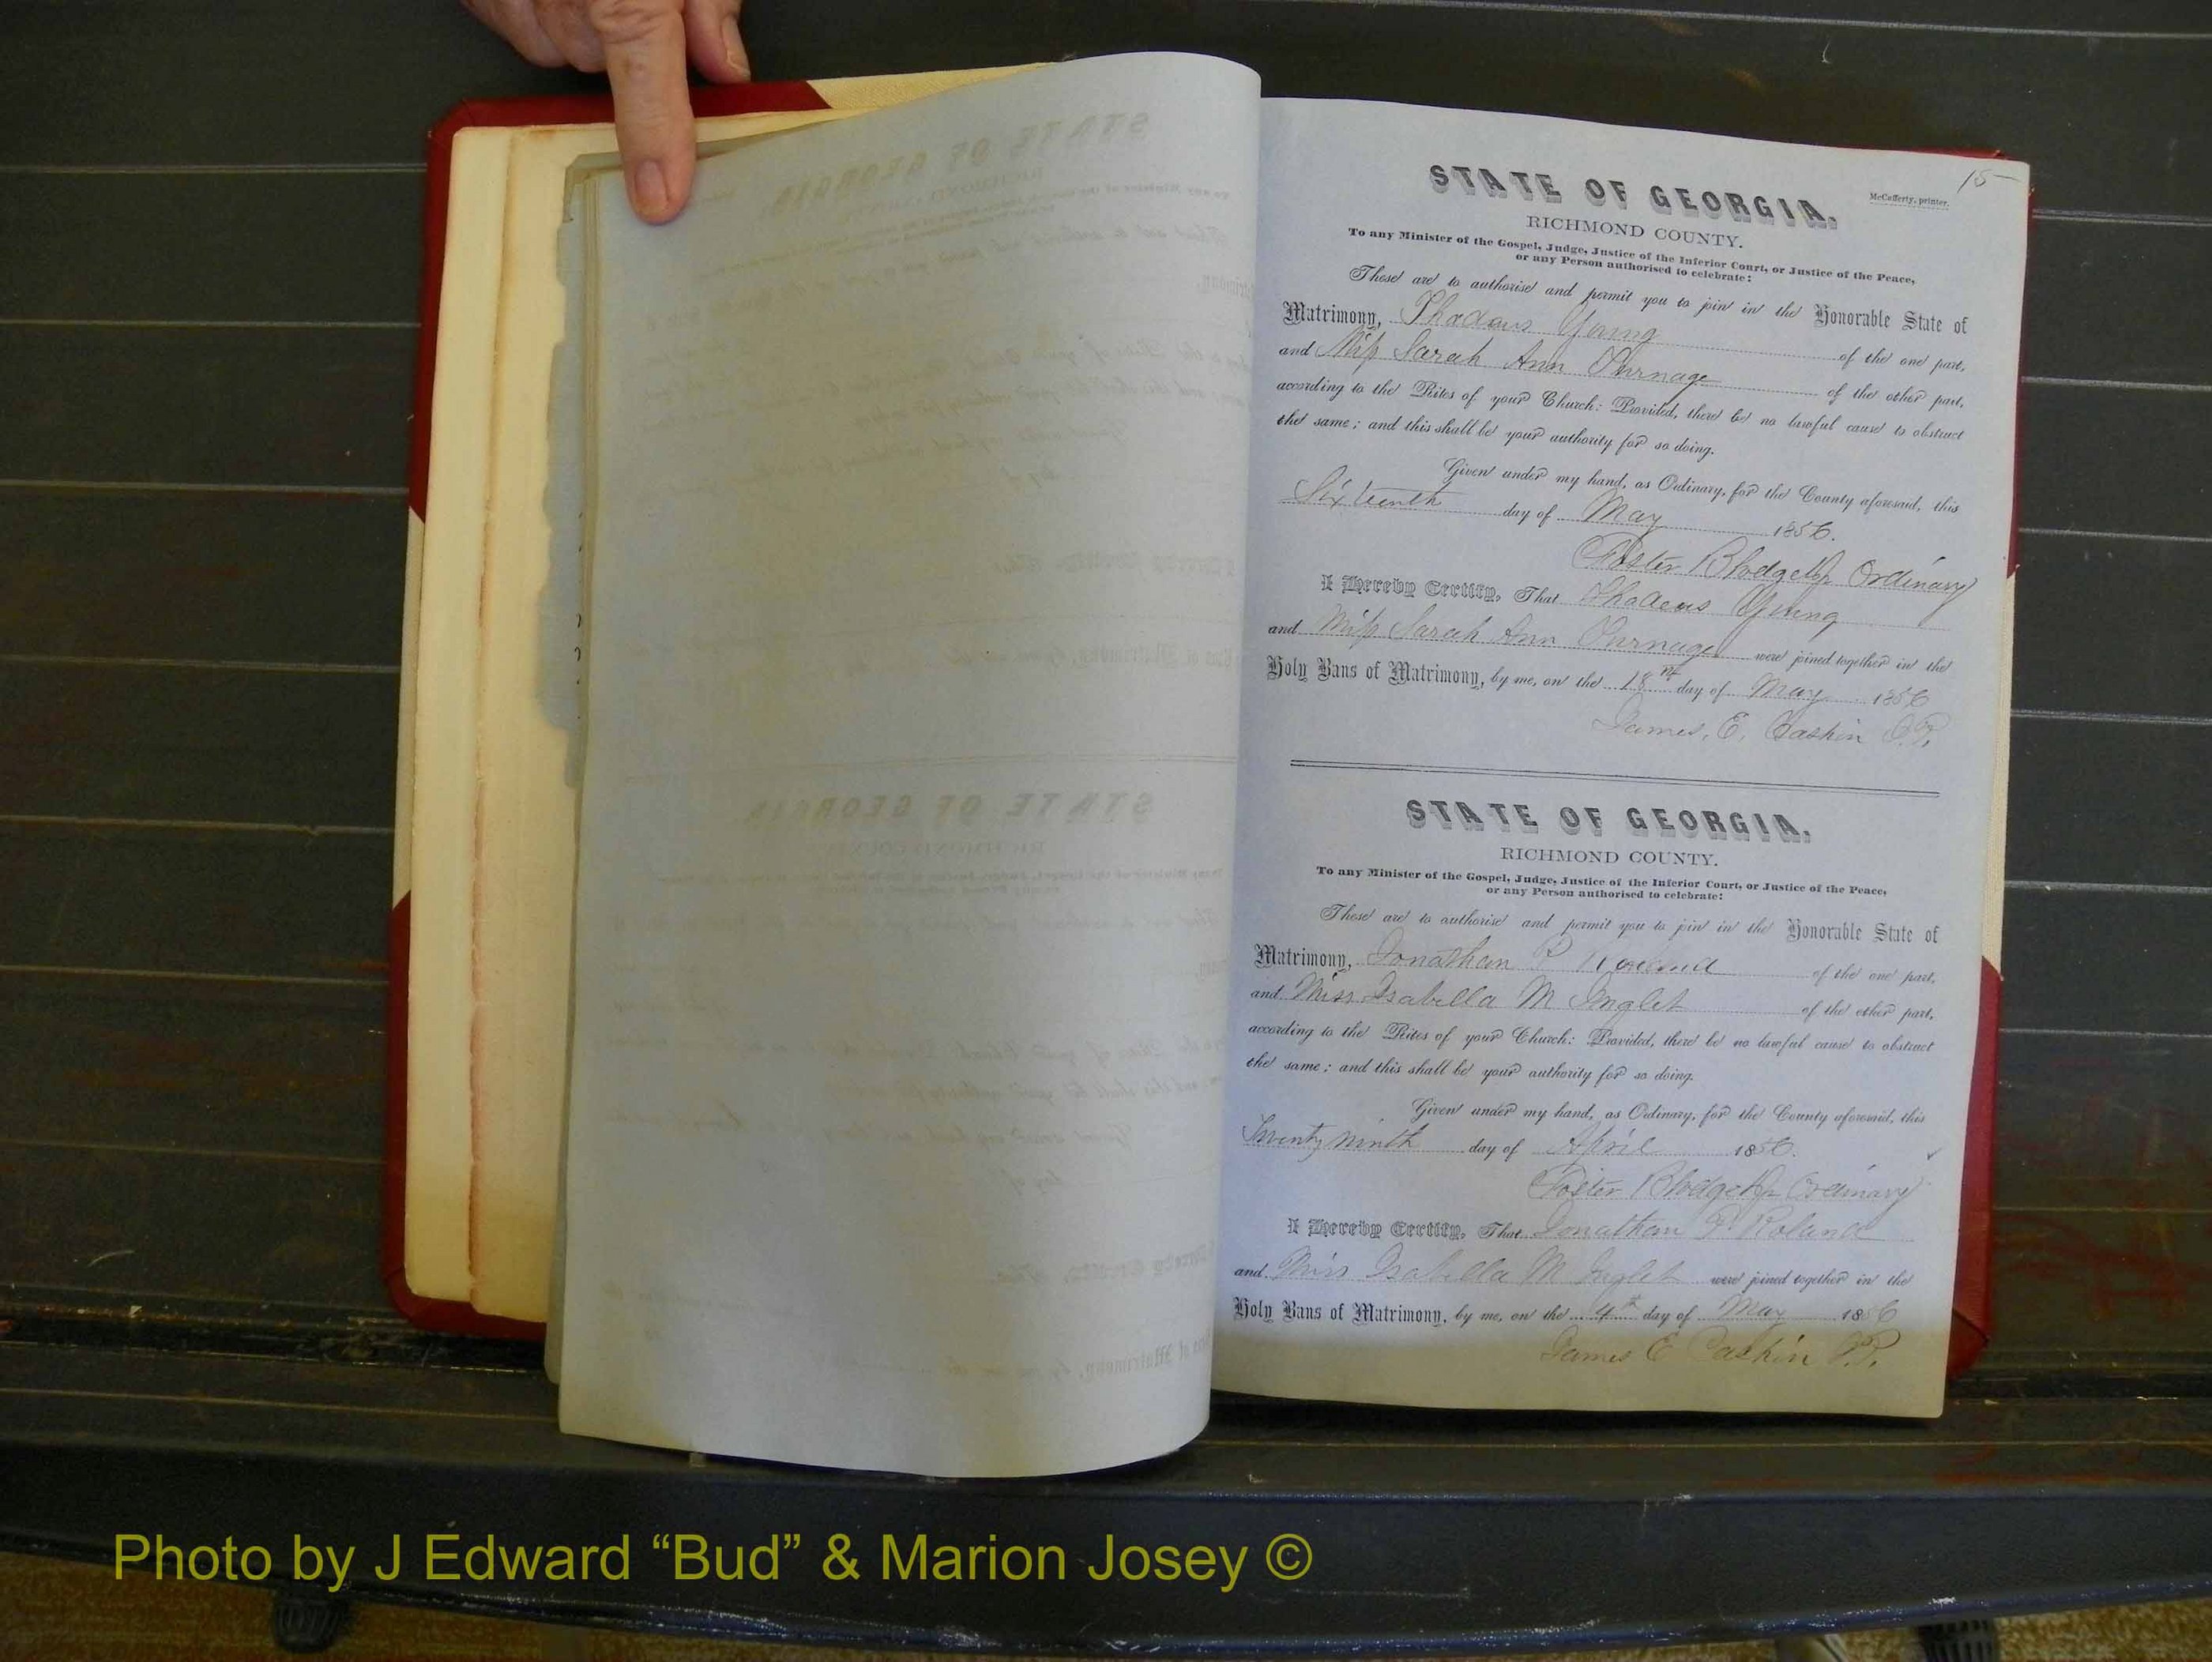 15
McCafferty, printer.
STATE OF GEORGIA,
RICHMOND COUNTY.
To any Minister of the Gospel, Judge, Justice of the Inferior Court, or Justice of the Peace,
or any Person authorised to celebrate:
These are to authorise and permit you to join in the Honorable State of
Matrimony, Thadaus Young of the one part,
and Miss Sarah Ann Turnage of the other part,
according to the Rites of your Church: Provided, there be no lawful cause to obstruct
the same; and this shall be your authority for so doing.
Given under my hand, as Ordinary, for the County aforesaid, this
Sixteenth day of May 1856.
Foster Blodget Jr Ordinary
I Hereby Certify, That Thadeus Young
and Miss Sarah Ann Turnage were joined together in the
Holy Bans of Matrimony, by me, on the 18th day of May 1856
James, E, Caskin J.P.
STATE OF GEORGIA,
RICHMOND COUNTY.
To any Minister of the Gospel, Judge, Justice of the Inferior Court, or Justice of the Peace,
or any Person authorised to celebrate:
These are to authorise and permit you to join in the Honorable State of
Matrimony, Jonathan of the one part,
and Miss Isabella M Inglet of the other part,
according to the Rites of your Church: Provided, there be no lawful cause to obstruct
the same; and this shall be your authority for so doing.
Given under my hand, as Ordinary, for the County aforesaid, this
Twenty ninth day of April 1856.
Foster Blodget Jr Ordinary
I Hereby Certify, That Jonathan P. Roland
and Miss Isabella M Inglet were joined together in the
Holy Bans of Matrimony, by me, on the 4th day of May 1856
James E Caskin J.P.
Photo by J Edward “Bud” & Marion Josey ©